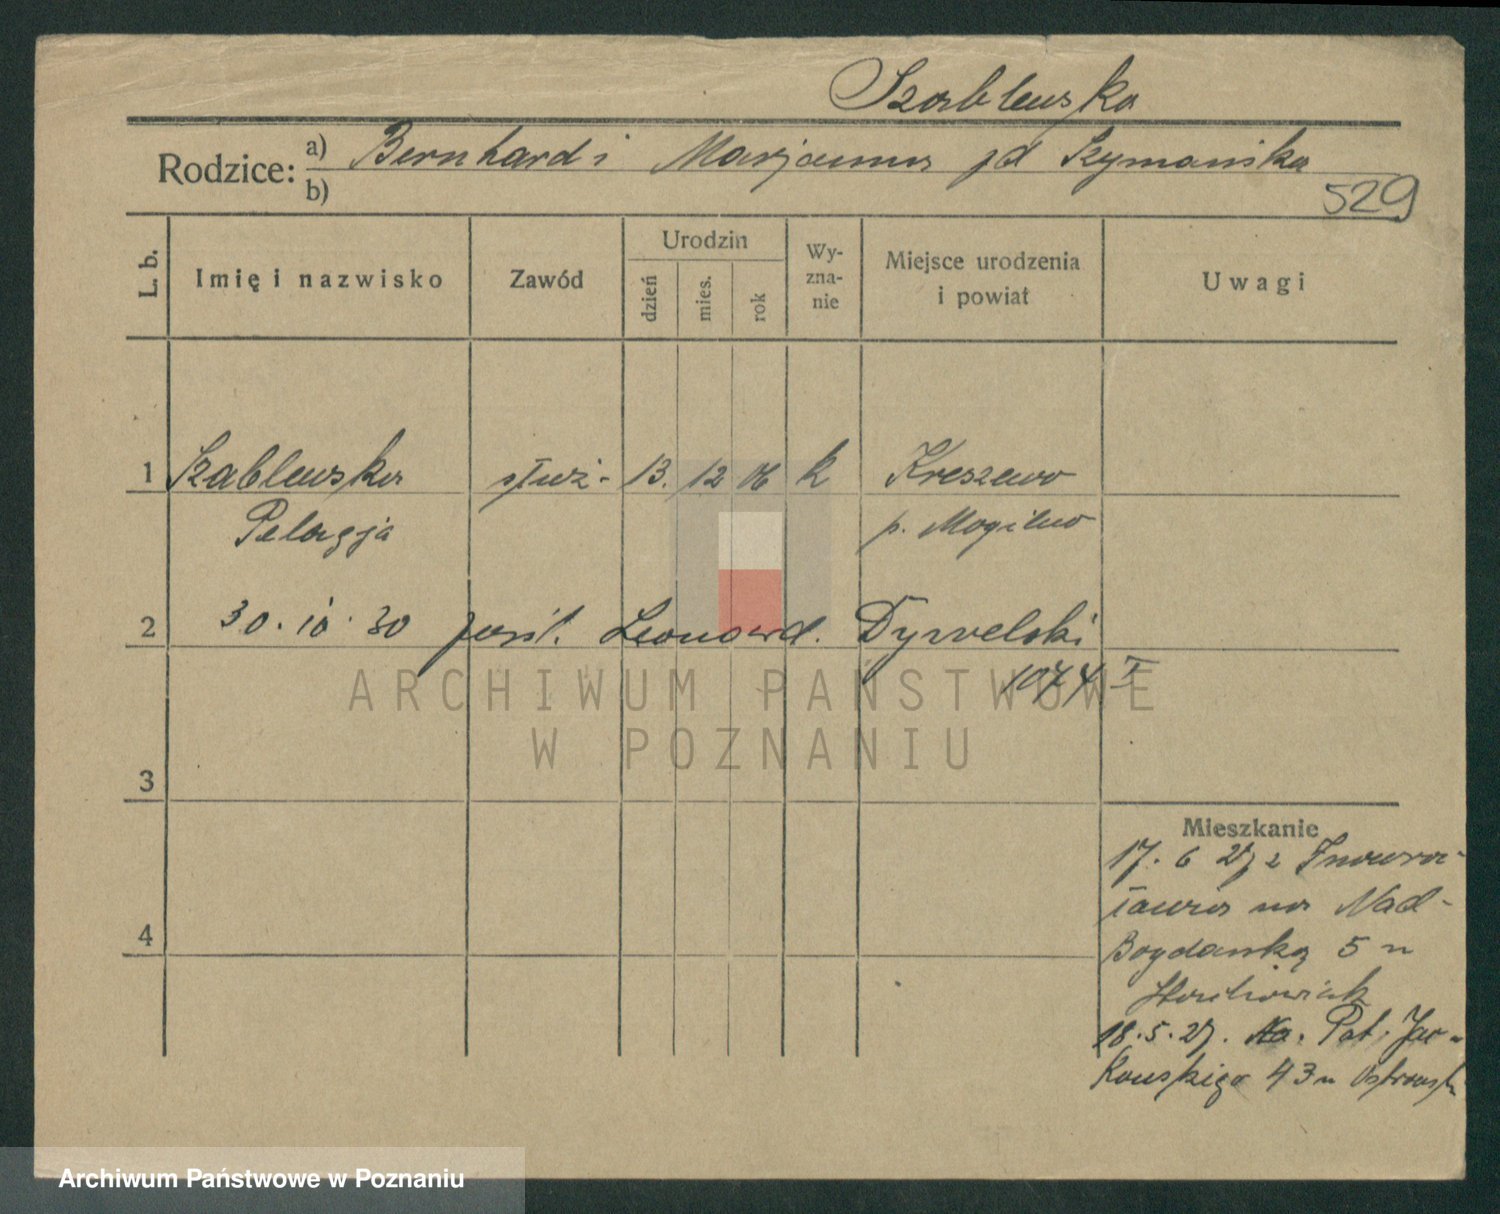 Szablewska
Rodzice: a) Bernhard i Marjanna zd Szymańska
b)
529
L. b.
Imię i nazwisko
Zawód
Urodzin
dzień
mies.
rok
Wy-
zna-
nie
Miejsce urodzenia
i powiat
Uwagi
1 Szablewska służ- 13. 12 06 k Kreszewo
Pelagja p. Mogilno
2 30.10.30 Leonard. Dyzvelski
1074 I
ARCHIWUM PAŃSTWOWE
W POZNANIU
3
Mieszkanie
17. 6 27 z Inowro-
cławia na Nad-
4
Bogdanką 5 u
18.5.27. Na. Pat. Jac-
kowskiego 43 u
Archiwum Państwowe w Poznaniu